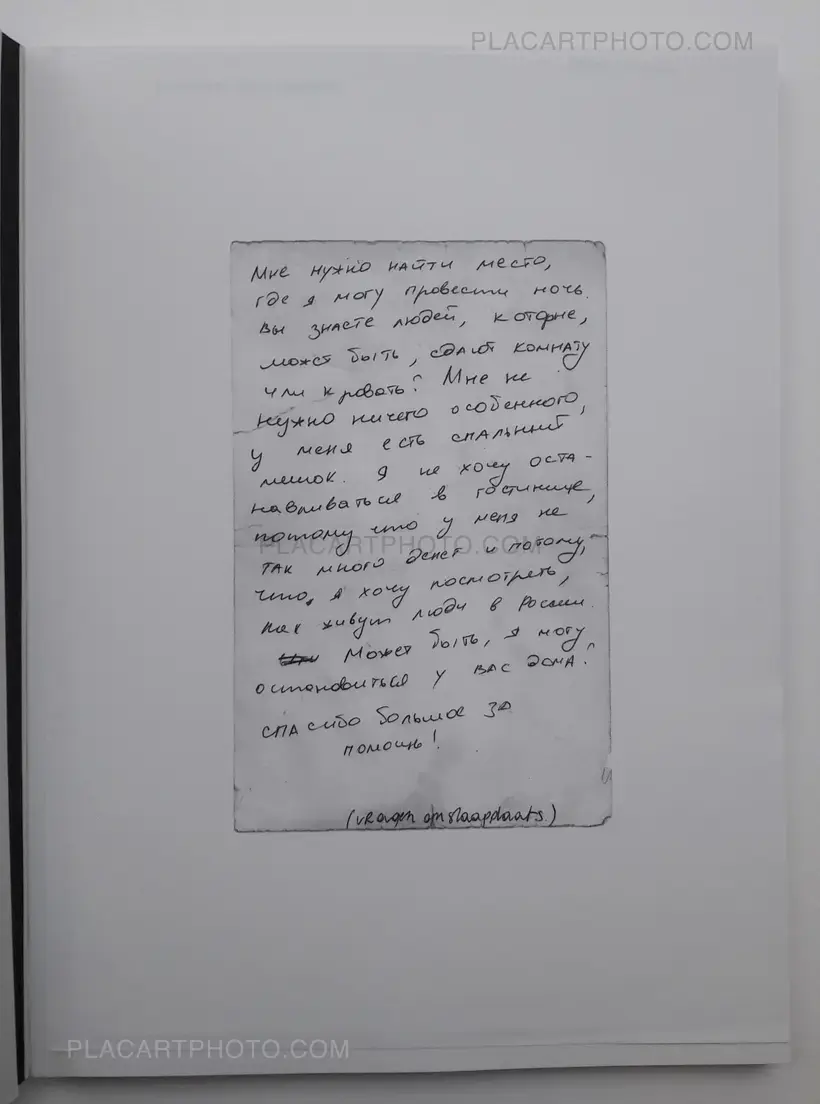 PLACARTPHOTO.COM
Мне нужно найти место,
где я могу провести ночь.
Вы знаете людей, которые,
может быть, сдают комнату
или кровать? Мне не
нужно ничего особенного,
у меня есть спальный
мешок. Я не хочу оста-
навливаться в гостинице,
потому что у меня не
PLACARTPHOTO.COM
так много денег и потому,
что, я хочу посмотреть,
как живут люди в России.
Может быть, я могу
остановиться у вас дома?
спасибо большое за
помощь!
(vragen om slaapplaats.)
PLACARTPHOTO.COM